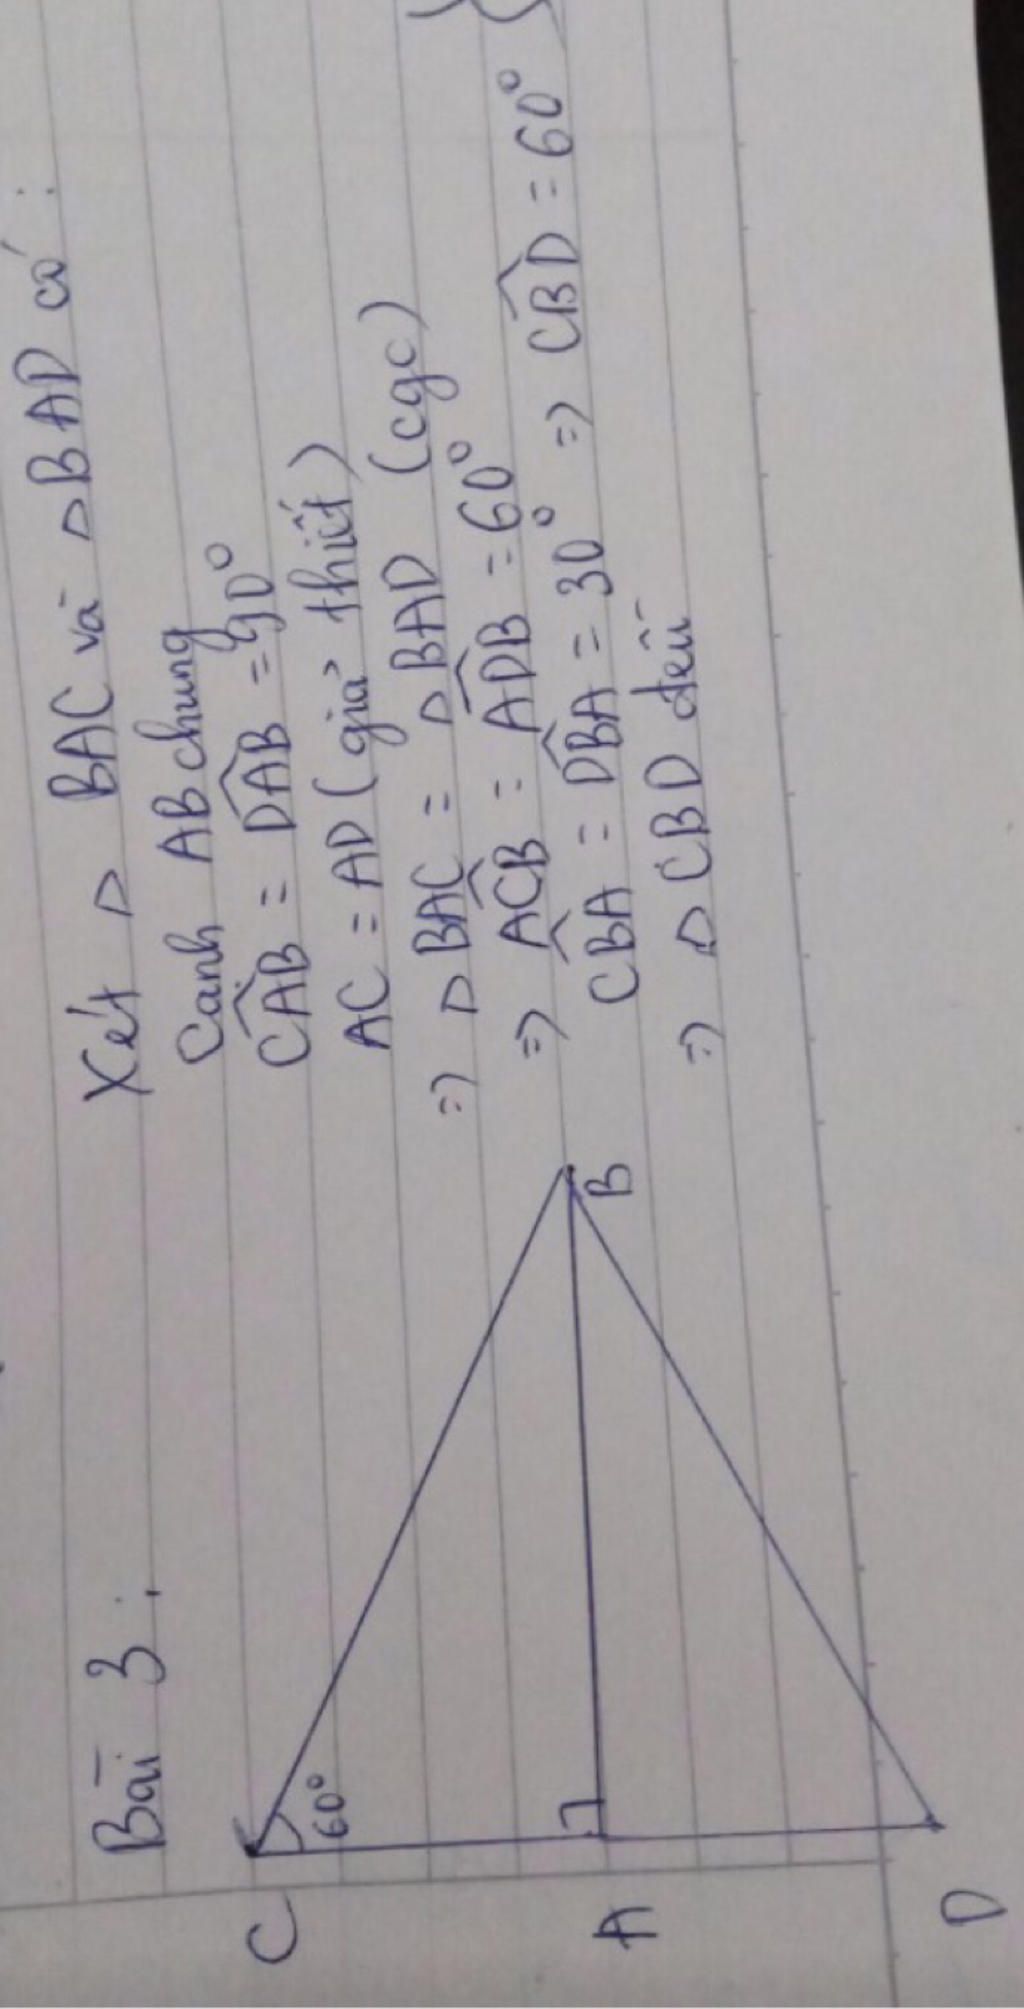 Bài 3:
Xét △ BAC và △BAD có:
Cạnh AB chung
CÂB = DÂB = 90°
AC = AD (giả thiết)
=> △ BAC = △ BAD (cgc)
=> AĈB = ADB̂ = 60°
CB̂A = DB̂A = 30° => CB̂D = 60°
=> △ CBD đều
C
60°
A
B
D